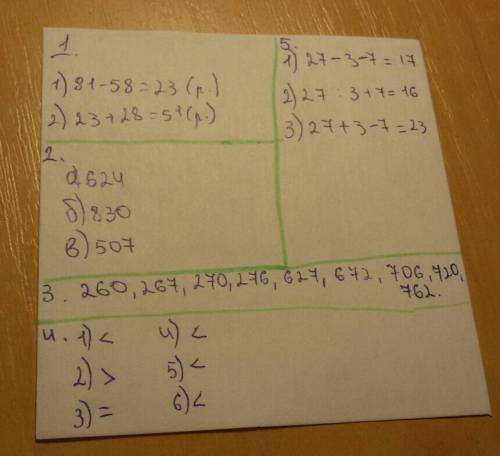 1.
1) 81-58=23 (р.)
2) 23+28=51(р.)
2.
а)624
б)830
в)507
5.
1) 27-3-7=17
2) 27:3+7=16
3) 27+3-7=23
3. 260, 267, 270, 276, 627, 672, 706, 720,
762.
4. 1) < 4) <
2) > 5) <
3) = 6) <